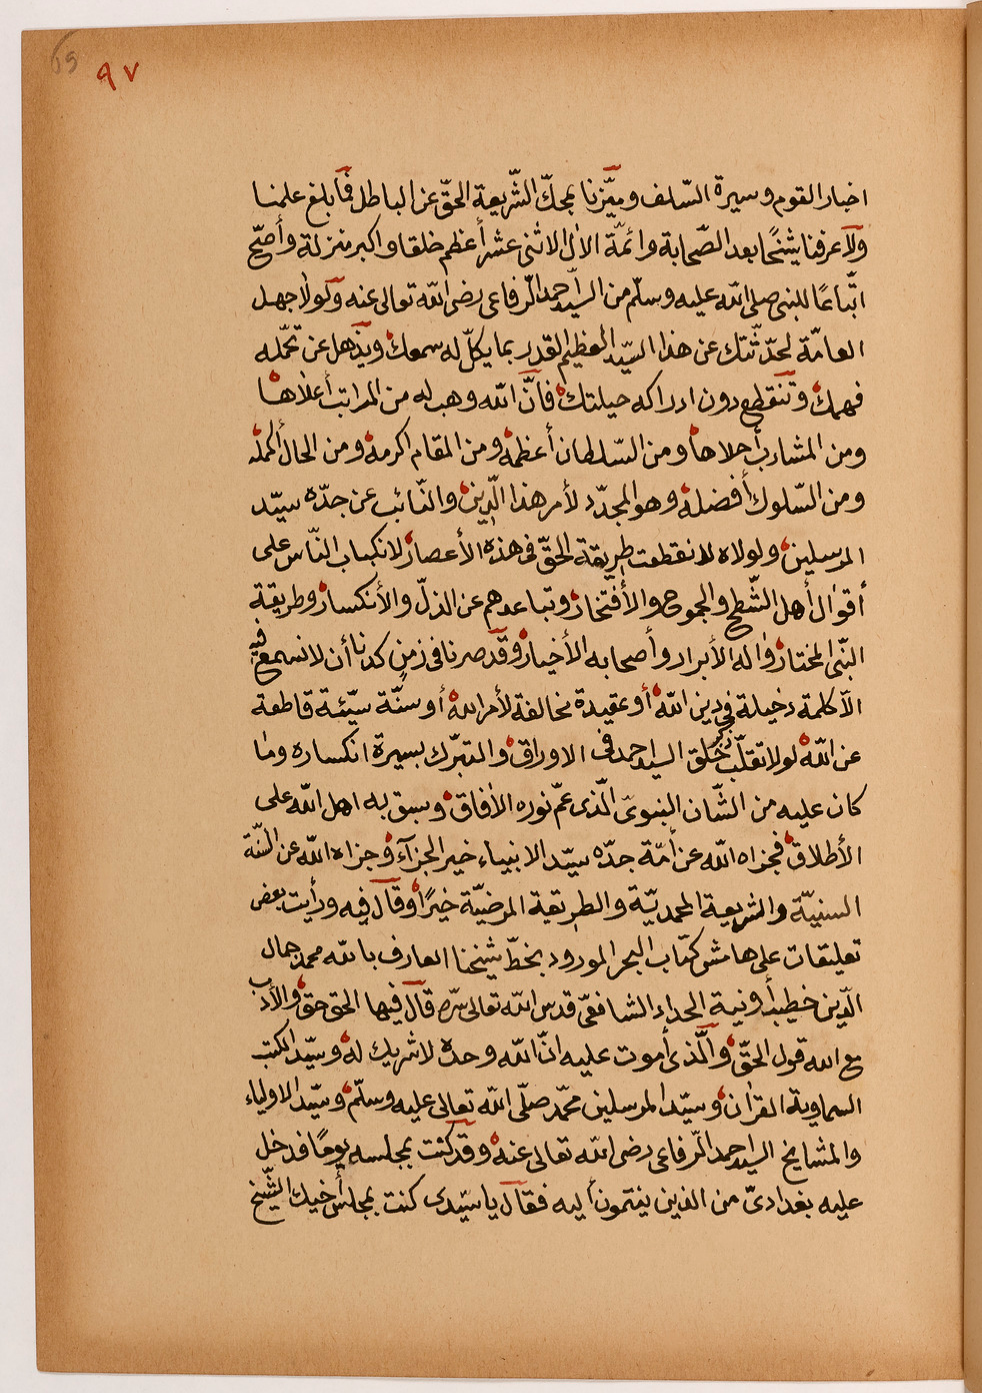 ٩٧
اخبار القوم وسيرة السّلف وميّزنا بمحكّ الشّريعة الحقّ عن الباطل فما بلغ علمنا
ولا عرفنا شيخًا بعد الصّحابة وائمّة الاٰل الاثنى عشر أعظم خلقا واكبر منزلة وأصحّ
اتّباعًا للنبى صلى الله عليه وسلّم من السيّد احمد الرّفاعى رضى الله تعالى عنه ولولا جهل
العامّة لحدّثتك عن هذا السيّد العظيم القدر بما يكلّ له سمعك ويذهل عن تحمّله
فهمك وتنقطع دون ادراكه حيلتك فانّ الله وهب له من المراتب أعلاها
ومن المشارب أحلاها ومن السّلطان أعظمه ومن المقام اكرمه ومن الحال اكمله
ومن السّلوك أفضله وهو المجدّد لأمر هذا الدّين والنّائب عن جدّه سيّد
المرسلين ولولاه لانقطعت طريقة الحقّ فى هذه الأعصار لانكباب النّاس على
أقوال أهل الشّطح والجموح والأفتخار وتباعدهم عن الذلّ والأنكسار وطريقة
النّبى المختار واٰله الأبرار وأصحابه الأخيار وقد صرنا فى زمن كدنا أن لا نسمع فيه
الّا كلمة دخيلة في دين الله أو عقيدة مخالفة لأمر الله أو سنّة سيّئة قاطعة
عن الله لولا تقلّب ذكر خلق السيد احمد فى الاوراق والتبرّك بسيرة انكساره وما
كان عليه من الشّان النبوىّ الّذى عمّ نوره الاٰفاق وسبق به اهل الله على
الأطلاق فجزاه الله عن أمّة جدّه سيّد الانبياء خير الجزآء وجزاه الله عن السّنّة
السنيّة والشريعة المحمديّة والطريقة المرضيّة خيرًا وقال فيه ورأيت بعض
تعليقات على هامش كتاب البحر المورود بخطّ شيخنا العارف بالله محمد جمال
الدّين خطيب أونية الحداد الشافعّى قدس الله تعالى سرّه قال فيها الحق حق والأدب
مع الله قول الحقّ والّذى أموت عليه انّ الله وحده لا شريك له وسيّد الكتب
السماوية القراٰن وسيّد المرسلين محمّد صلّى الله تعالى عليه وسلّم وسيّد الاولياء
والمشايخ السيد احمد الرّفاعى رضى الله تعالى عنه وقد كنت بمجلسه يومًا فدخل
عليه بغدادىّ من الذين ينتمون اليه فقال يا سيّدى كنت بمجلس أخيك الشّيخ